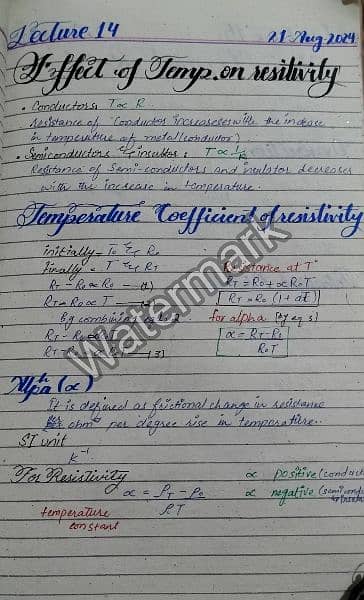 Lecture 14
21-Aug-2024
Effect of Temp. on resitivity
• Conductors: T ∝ R
Resistance of Conductor increases with the increase
in temperature of metal(conductor)
• Semiconductors & insulators: T ∝ 1/R
Resistance of Semi-conductors and insulator decreases
with the increase in temperature.
Temperature Coefficient of resistivity
initially = T₀ & R₀
finally = T & R_T
R_T - R₀ ∝ R₀ — (1)
R_T - R₀ ∝ T
By combining eq 1, 2
R_T - R₀ ∝ R₀T
R_T - R₀ = R₀T — (3)
Resistance at T°
R_T = R₀ + ∝R₀T
R_T = R₀ (1 + ∝t)
for alpha [by eq 3]
∝ = R_T - R₀ / R₀T
Alpha (∝)
It is defined as frictional change in resistance
ohm per degree rise in temperature.
SI unit
K⁻¹
For Resistivity
∝ = ρ_T - ρ₀ / ρT
∝ positive (conduct
∝ negative (semicond
temperature
constant
Watermark